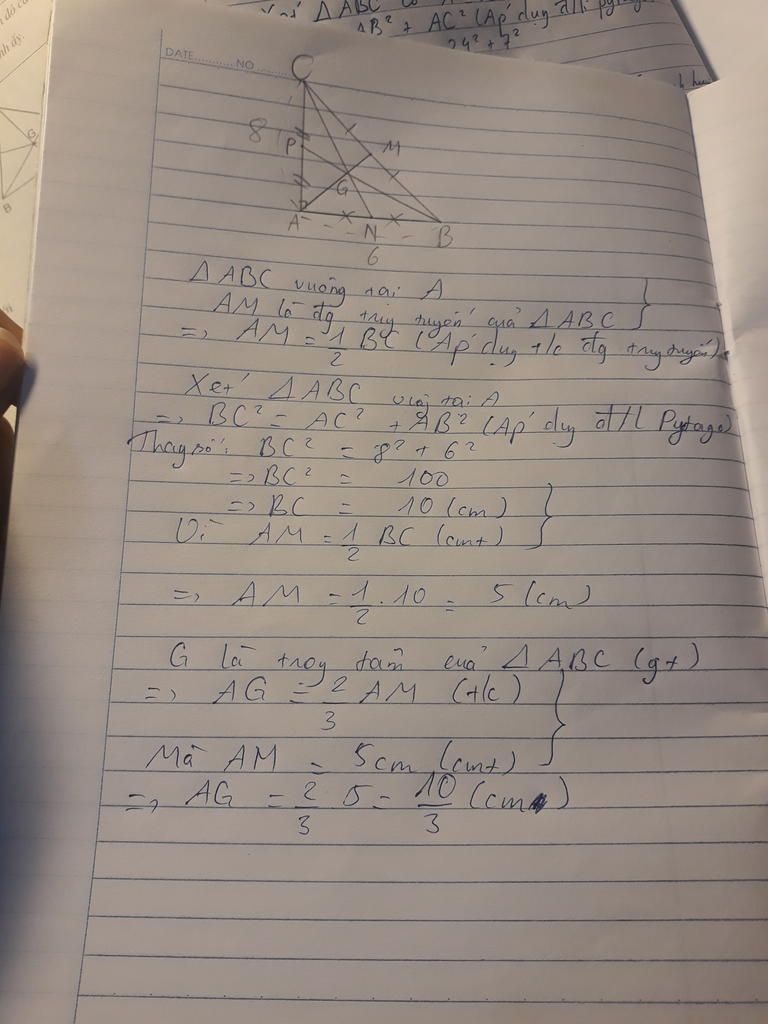 Xét ΔABC có
AB² + AC² (Áp dụng đ/l pytago
24² + 7²
DATE............ NO............
C
8
P
M
G
G
A
N
B
B
6
ΔABC vuông tại A
AM là đg trug tuyến quả ΔABC
=> AM = 1/2 BC (Áp dụng t/c đg trug tuyến)
Xét ΔABC vuôg tại A
=> BC² = AC² + AB² (Áp dụg đ/l Pytago)
Thay số: BC² = 8² + 6²
=> BC² = 100
=> BC = 10 (cm)
Vì AM = 1/2 BC (cmt)
=> AM = 1/2 . 10 = 5 (cm)
G là trọg tâm quả ΔABC (gt)
=> AG = 2/3 AM (t/c)
Mà AM = 5cm (cmt)
=> AG = 2/3 5 = 10/3 (cm)